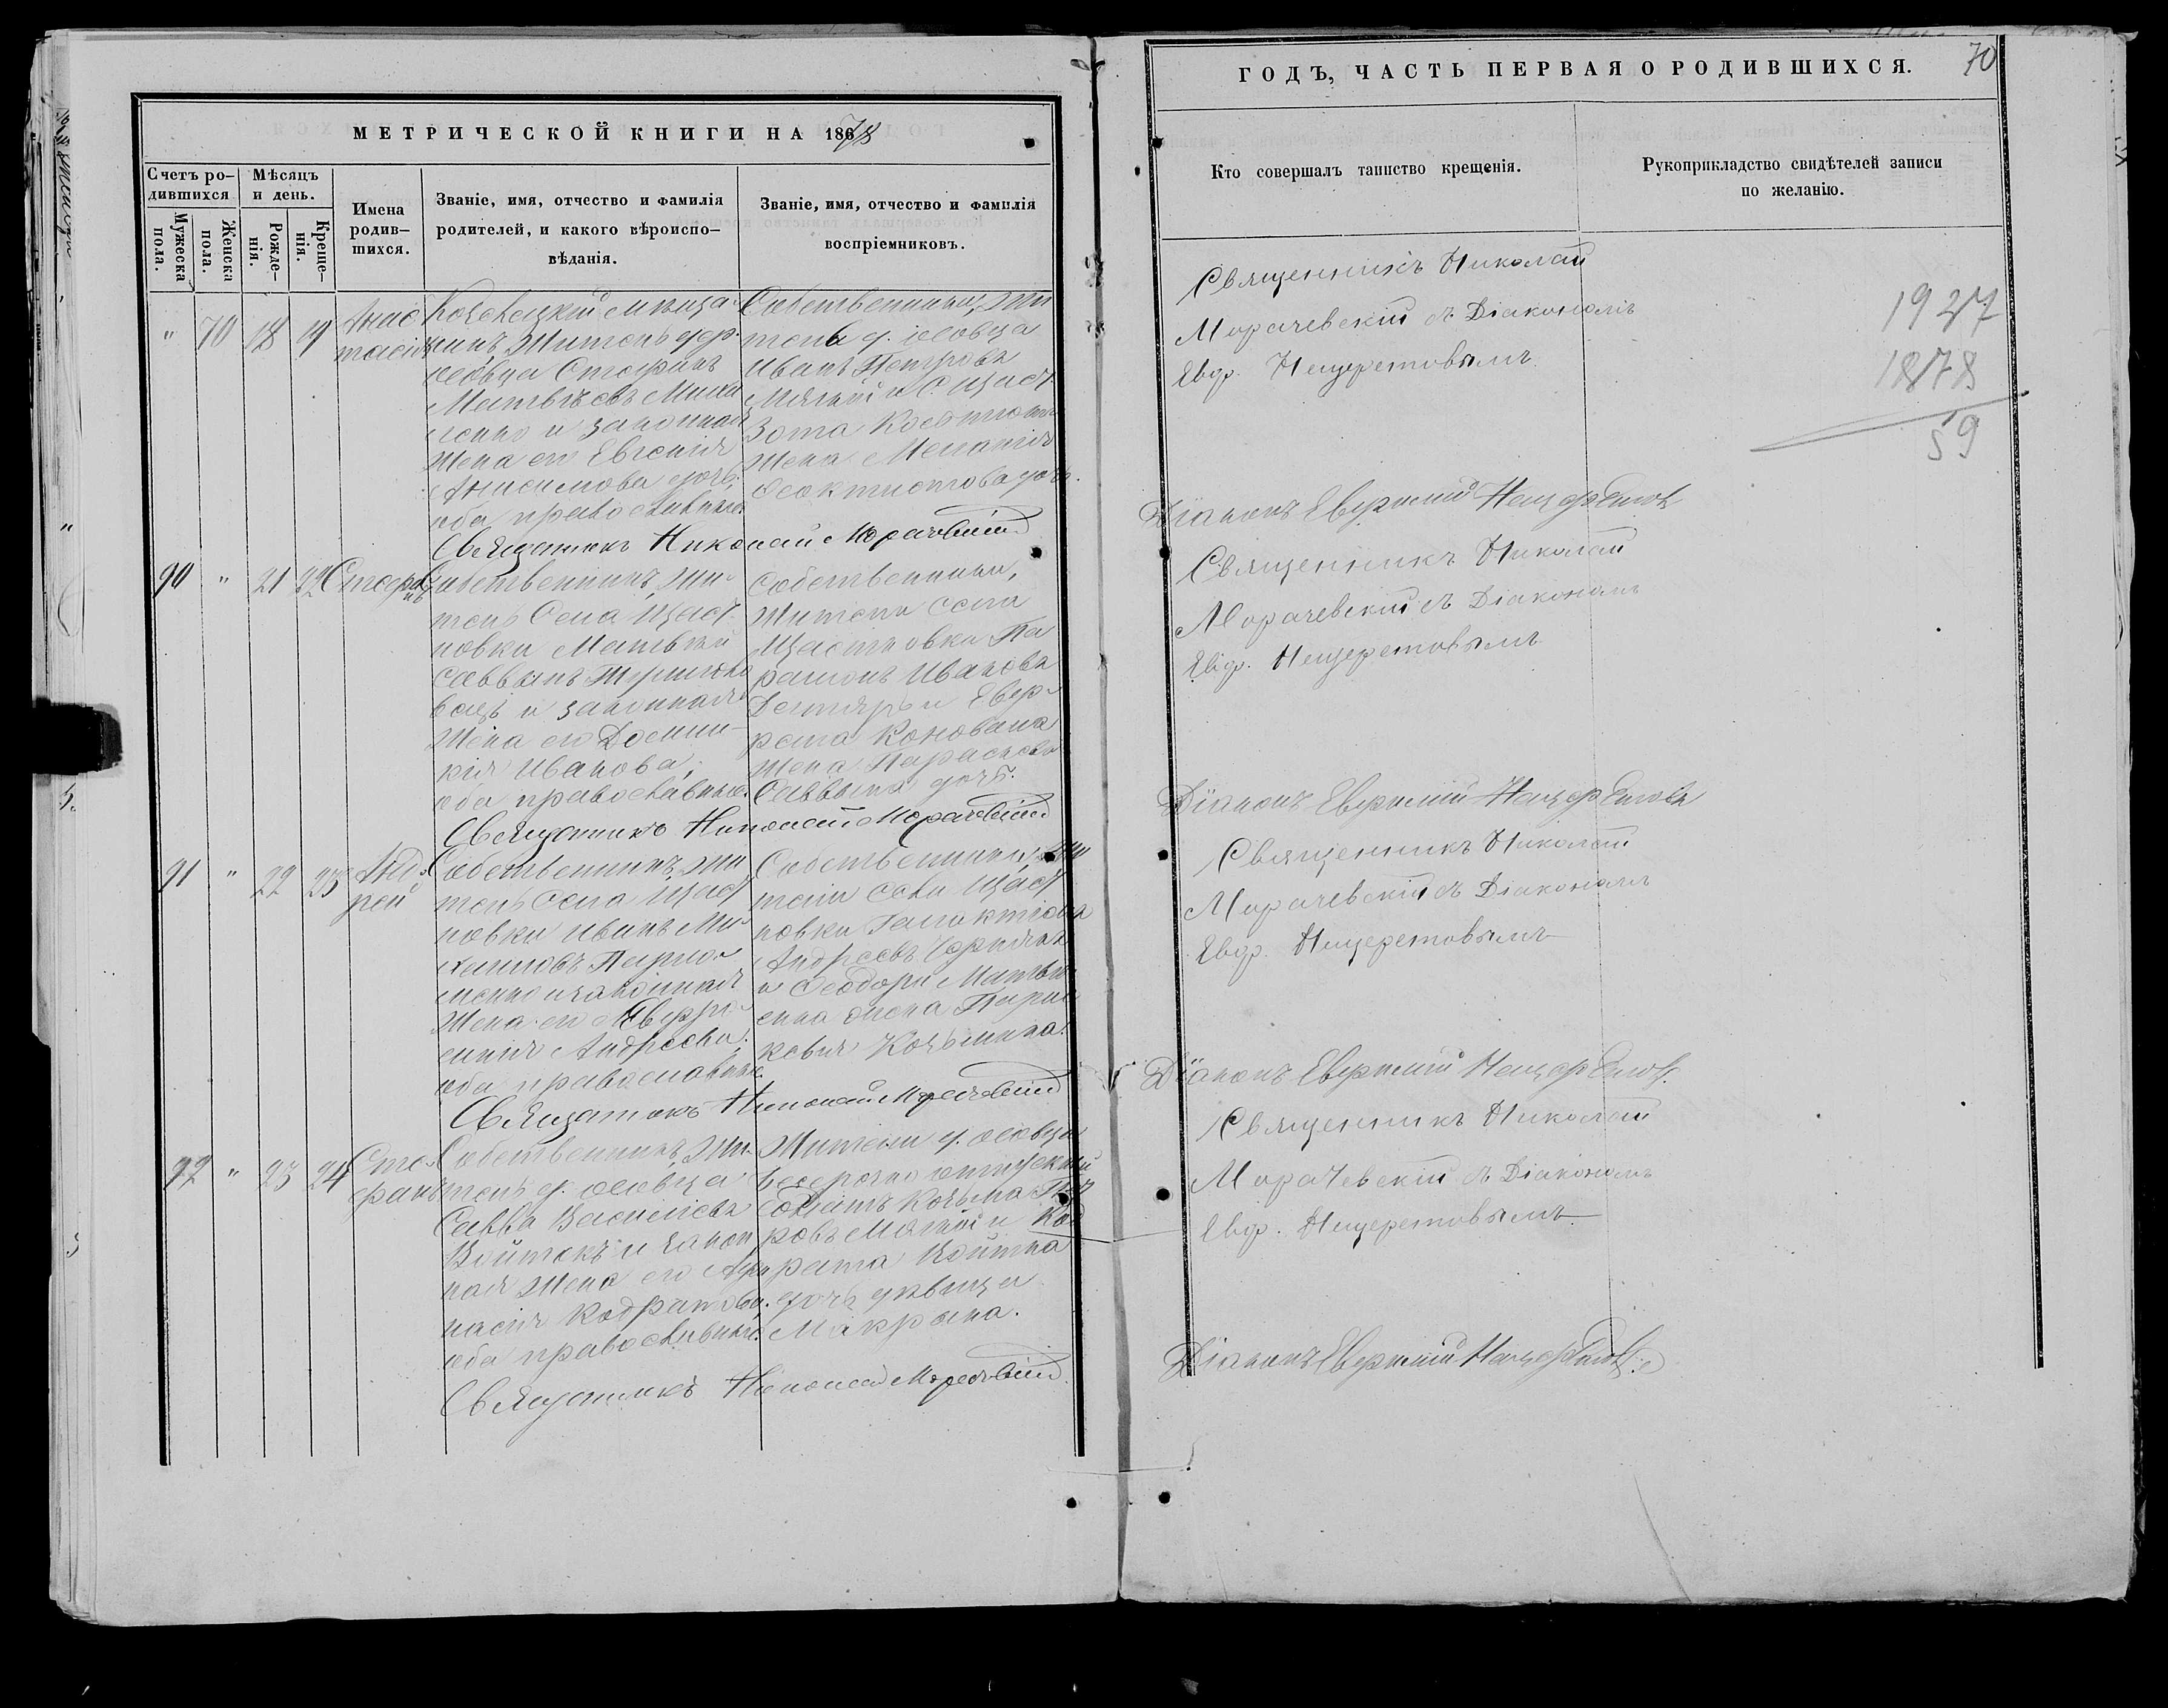 МЕТРИЧЕСКОЙ КНИГИ НА 1878
Счетъ ро-
дившихся
Мѣсяцъ
и день.
Мужеска
пола.
Женска
пола.
Рожде-
нія.
Креще-
нія.
Имена
родив-
шихся.
Званіе, имя, отчество и фамилія
родителей, и какого вѣроиспо-
вѣданія.
Званіе, имя, отчество и фамилія
воспріемниковъ.
" 70 18 19
Анас
тасія
житель дер.
Осовца Стефанъ
Матвѣевъ
и законная
жена его Евгенія
Анисимова дочь,
оба православные.
Собственники, жи
тель д. Осовца
Иванъ Петровъ
Мягкій и С. Щаст.
Зота
жена Мелатія
Феоктистова дочь.
Священникъ Николай Морачевскій
90 " 21 22
Стефанъ
Собственникъ, жи-
тель Села Щаст
новки Матвѣй
Саввинъ
и законная
жена его Домни-
кія Иванова,
оба православные.
Собственники,
жители села
Щастновки Па
рамонъ Ивановъ
Дегтярь и Евф-
рема Коновала
жена Параскева
Саввина дочь.
Священникъ Николай Морачевскій
91 " 22 23
Анд-
рей
Собственникъ, жи
тель Села Щаст
новки Иванъ Ми-
хаиловъ
и законная
жена его Евфро-
синія Андреева,
оба православные.
Собственники, жи
тели Села Щаст
новки Галактіонъ
Андреевъ Чернякъ
и Феодора
жена
Козьмина.
Священникъ Николай Морачевскій
92 " 23 24
Сте-
фанъ
Собственникъ, жи-
тель д. Осовца
Савва Василіевъ
Войтокъ и закон
ная жена его
Кодратова,
оба православные.
Жители д. Осовца
безсрочно отпускный
Солдатъ Козьма
Мягкій и Код
рата Войтка
дочь дѣвица
Макрына.
Священникъ Николай Морачевскій
ГОДЪ, ЧАСТЬ ПЕРВАЯ О РОДИВШИХСЯ.
70
Кто совершалъ таинство крещенія.
Рукоприкладство свидѣтелей записи
по желанію.
Священникъ Николай
Морачевскій съ Діакономъ
Евф. Нещеретовымъ
1937
1878
59
Діаконъ Евфимій Нещеретовъ
Священникъ Николай
Морачевскій съ Діакономъ
Евф. Нещеретовымъ
Діаконъ Евфимій Нещеретовъ
Священникъ Николай
Морачевскій съ Діакономъ
Евф. Нещеретовымъ
Діаконъ Евфимій Нещеретовъ.
Священникъ Николай
Морачевскій съ Діакономъ
Евф. Нещеретовымъ.
Діаконъ Евфимій Нещеретовъ